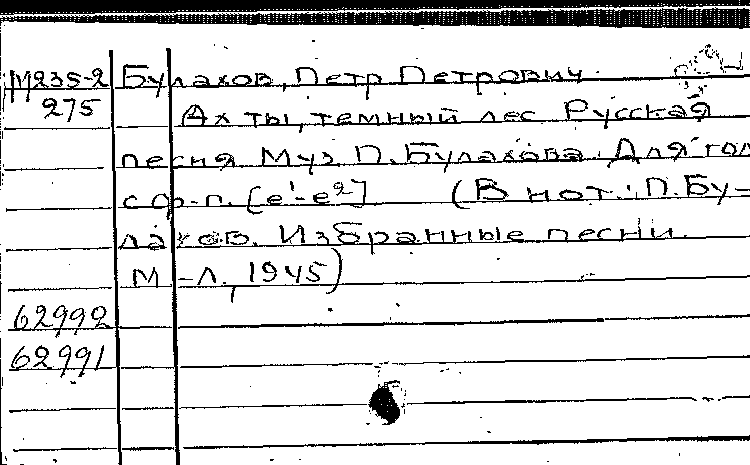 М235-2 Булахов, Петр Петрович.
275 Ах ты, темный лес Русская
песня Муз П. Булахова. Для гол
с ф-п. [e¹-e²] (В нот.: П. Бу-
лахов. Избранные песни.
М-Л., 1945)
62992
62991